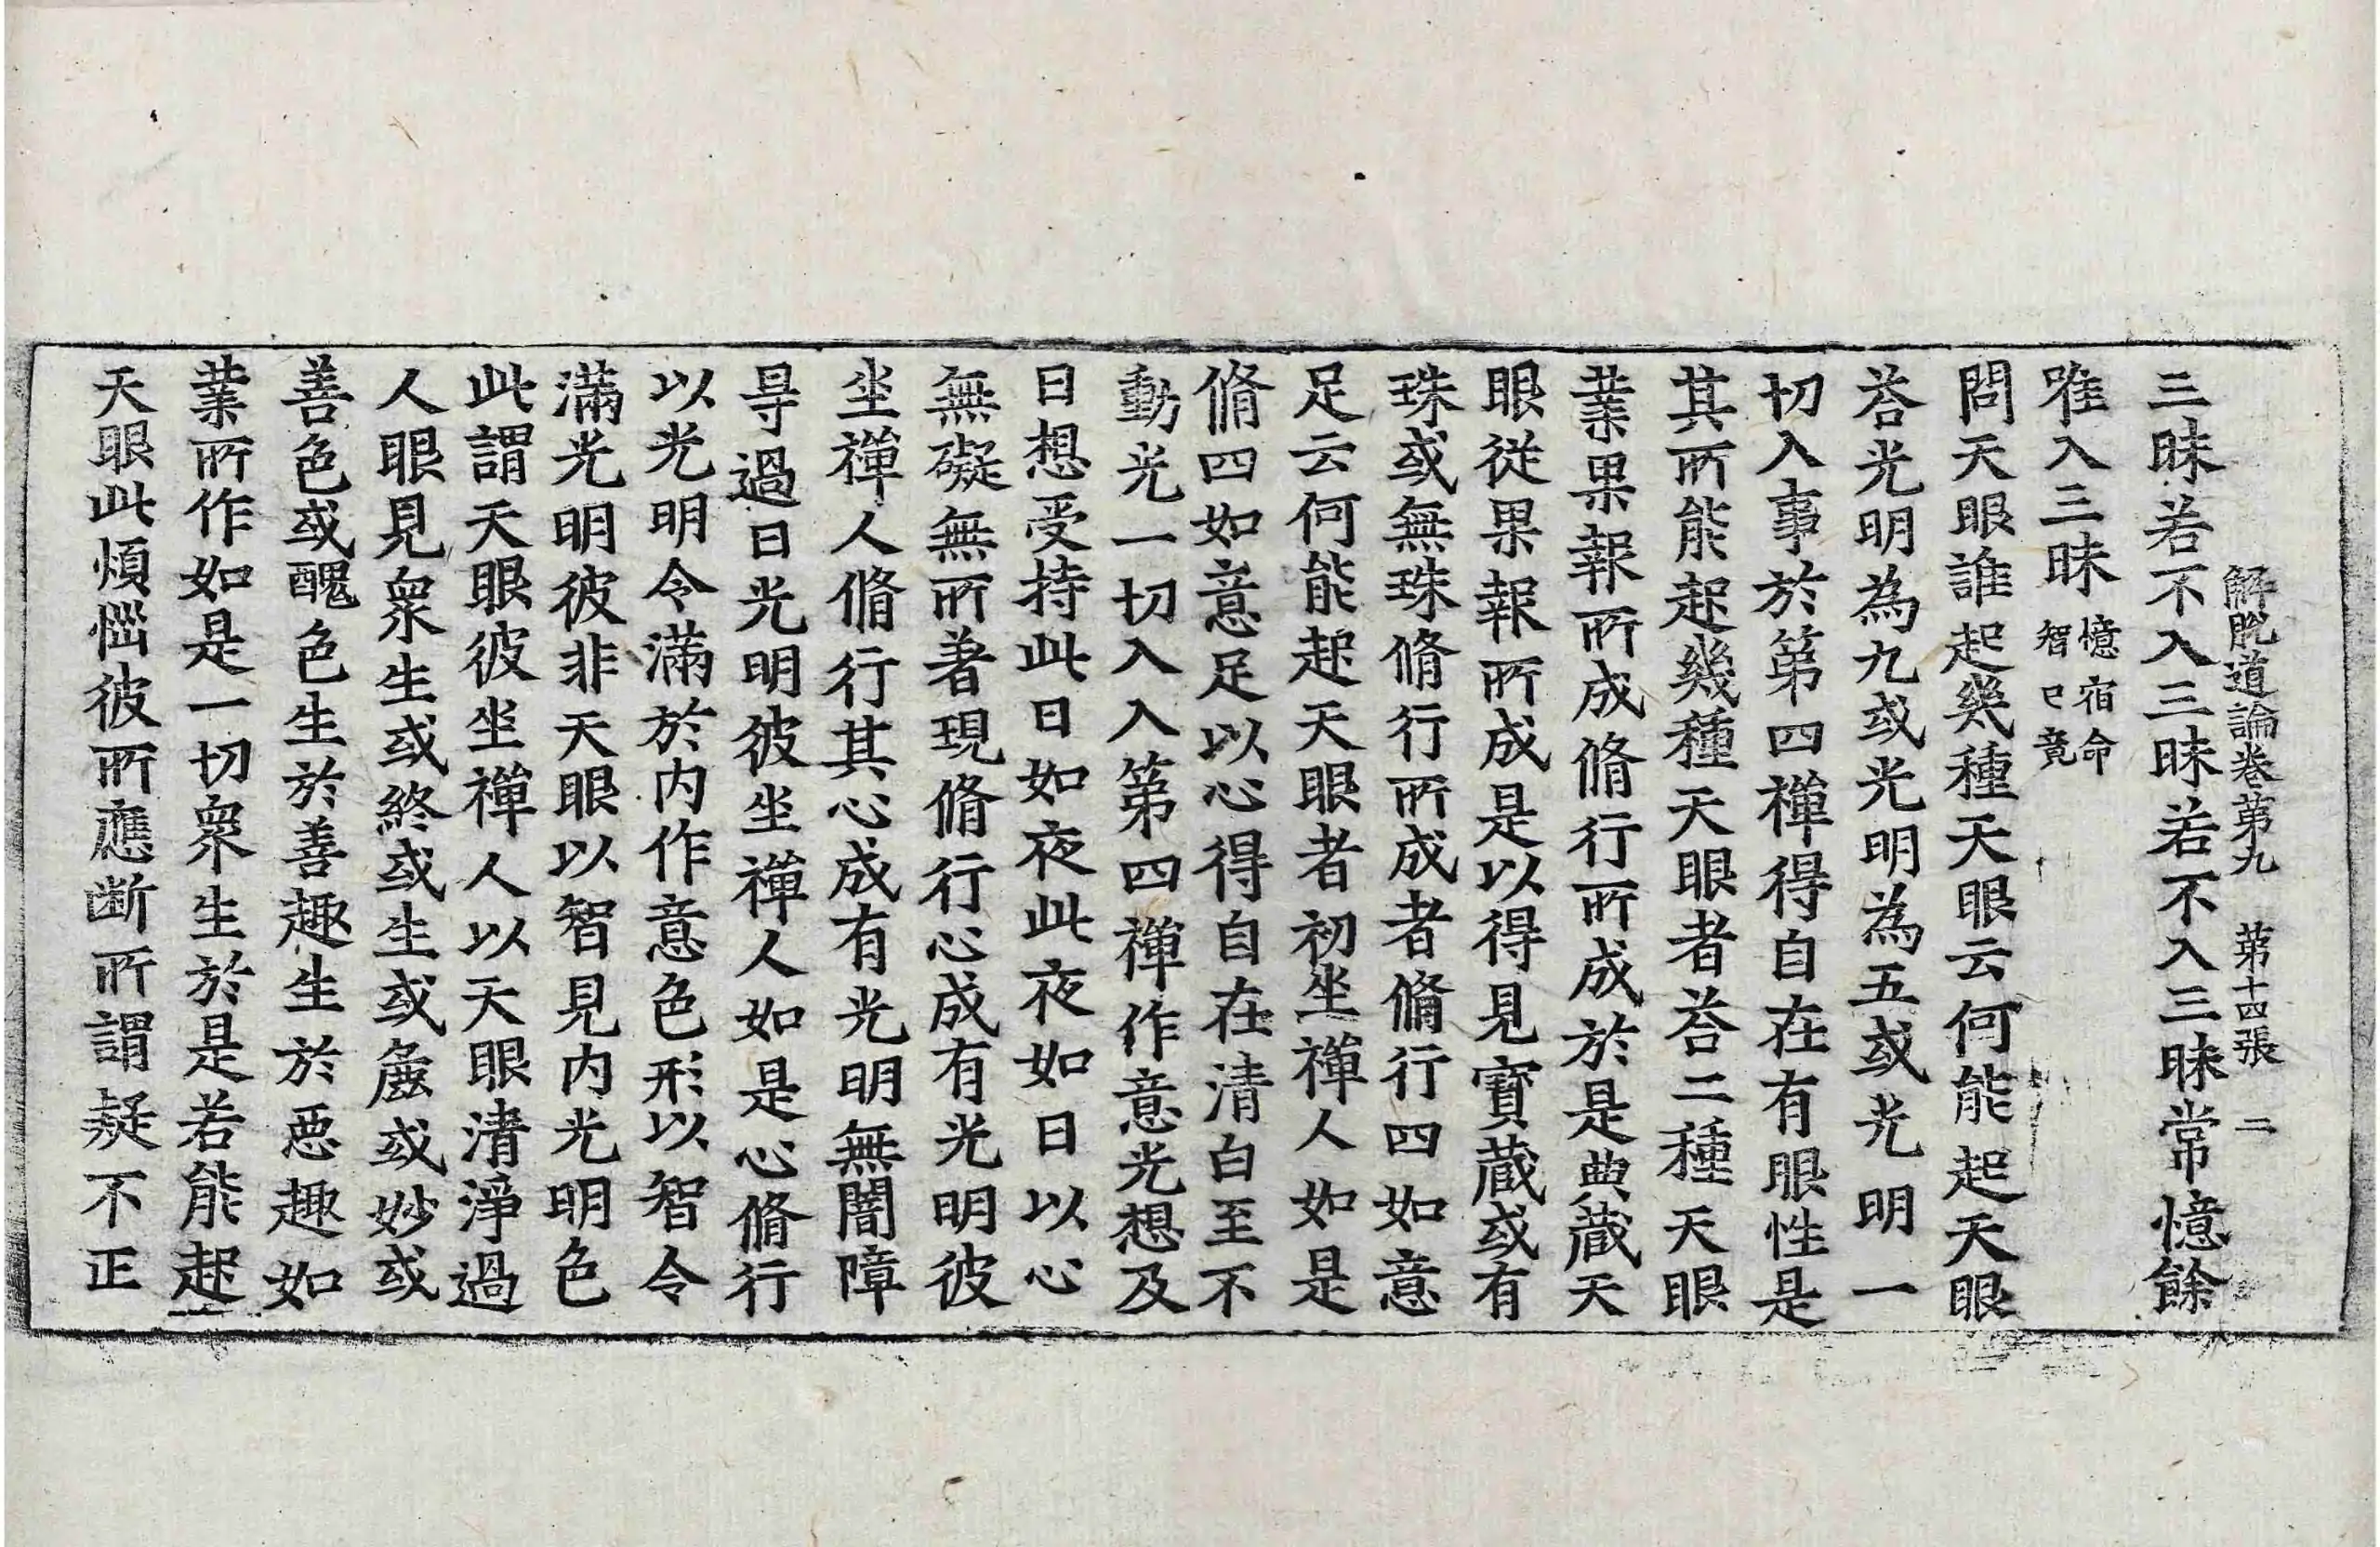 解脫道論卷第九　第十四張　二
三昧若不入三昧若不入三昧常憶餘
唯入三昧憶宿命智已竟
問天眼誰起幾種天眼云何能起天眼
荅光明為九或光明為五或光明一
切入事於第四禪得自在有眼性是
其所能起幾種天眼者荅二種天眼
業果報所成脩行所成於是典藏天
眼從果報所成是以得見寶藏或有
珠或無珠脩行所成者脩行四如意
足云何能起天眼者初坐禪人如是
脩四如意足以心得自在清白至不
動光一切入入第四禪作意光想及
日想受持此日如夜此夜如日以心
無礙無所著現脩行心成有光明彼
坐禪人脩行其心成有光明無闇障
㝵過日光明彼坐禪人如是心脩行
以光明令滿於內作意色形以智令
滿光明彼非天眼以智見內光明色
此謂天眼彼坐禪人以天眼清淨過
人眼見眾生或終或生或麁或妙或
善色或醜色生於善趣生於惡趣如
業所作如是一切眾生於是若能起
天眼此煩惱彼所應斷所謂疑不正